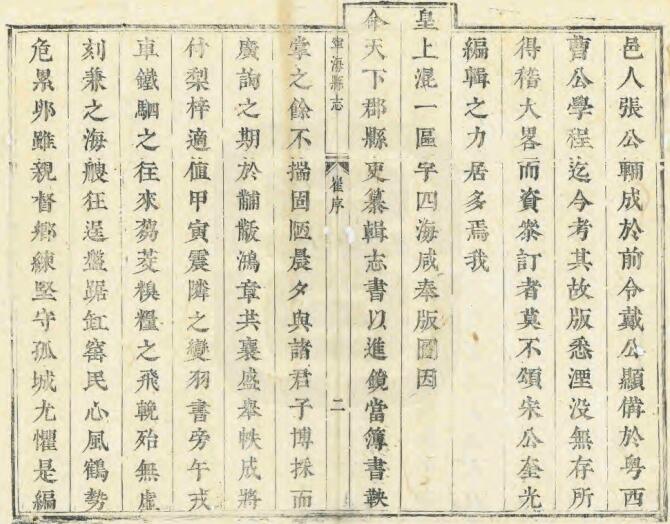 邑人張公輛成於前令戴公顯備於粤西
曹公學程迄今考其故版悉湮没無存所
得稽大畧而資衆訂者莫不頌宋公奎光
編輯之力居多焉我
皇上混一區宇四海咸奉版圖因
命天下郡縣更纂輯志書以進鏡當簿書鞅
寕海縣志
崔序
二
掌之餘不揣固陋晨夕與諸君子博採而
廣詢之期於黼黻鴻章共襄盛舉帙成將
付梨梓適值甲寅震隣之變羽書旁午戎
車鐵駟之往來芻茭糗糧之飛輓殆無虛
刻兼之海艘狂逞盤踞缸窰民心風鶴勢
危累卵雖親督鄉練堅守孤城尤懼是編